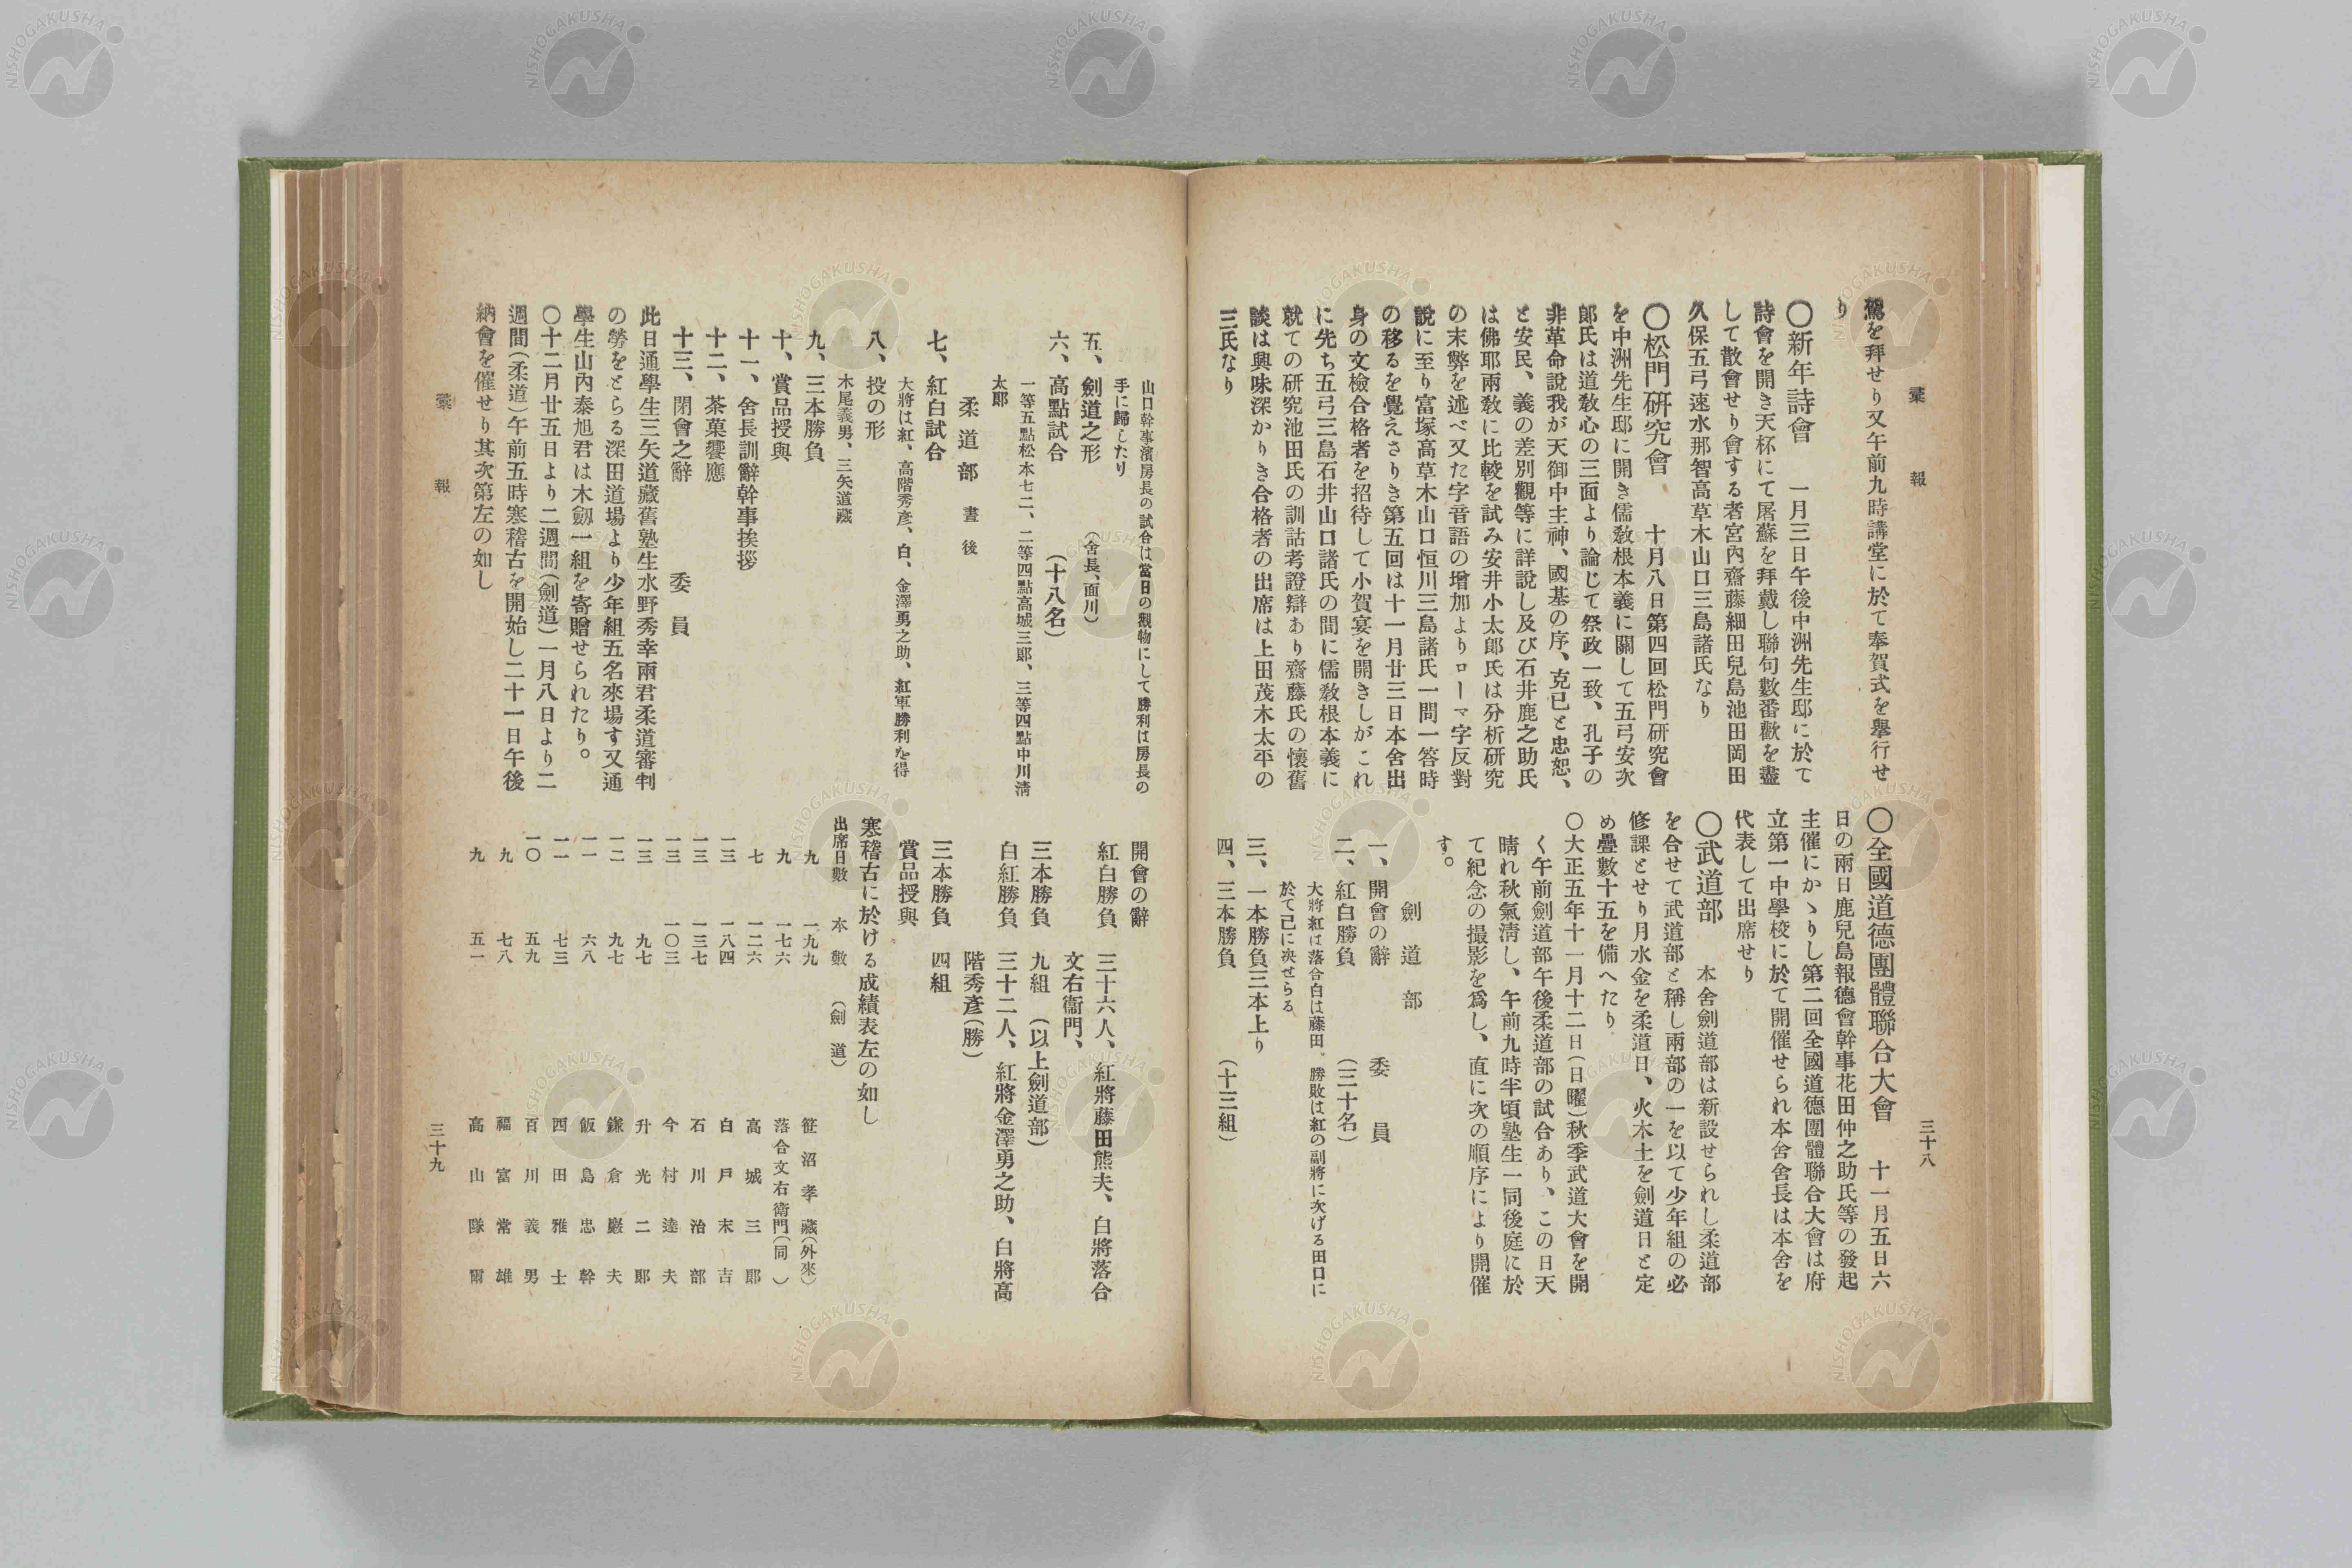 彙報
三十八
駕を拜せり又午前九時講堂に於て奉賀式を擧行せ
り
〇新年詩會　一月三日午後中洲先生邸に於て
詩會を開き天杯にて屠蘇を拜戴し聯句數番歡を盡
して散會せり會する者宮內齋藤細田兒島池田岡田
久保五弓速水那智高草木山口三島諸氏なり
〇松門研究會　十月八日第四回松門研究會
を中洲先生邸に開き儒敎根本義に關して五弓安次
郞氏は道敎心の三面より論じて祭政一致、孔子の
非革命說我が天御中主神、國基の序、克己と忠恕、
と安民、義の差別觀等に詳說し及び石井鹿之助氏
は佛耶兩敎に比較を試み安井小太郞氏は分析硏究
の末弊を述べ又た字音語の增加よりローマ字反對
說に至り富塚高草木山口恒川三島諸氏一問一答時
の移るを覺えさりき第五回は十一月廿三日本舍出
身の文檢合格者を招待して小賀宴を開きしがこれ
に先ち五弓三島石井山口諸氏の間に儒敎根本義に
就ての硏究池田氏の訓詁考證辯あり齋藤氏の懷舊
談は興味深かりき合格者の出席は上田茂木太平の
三氏なり
〇全國道德團體聯合大會　十一月五日六
日の兩日鹿兒島報德會幹事花田仲之助氏等の發起
主催にかゝりし第二回全國道德團體聯合大會は府
立第一中學校に於て開催せられ本舍舍長は本舍を
代表して出席せり
〇武道部　本舍劍道部は新設せられし柔道部
を合せて武道部と稱し兩部の一を以て少年組の必
修課とせり月水金を柔道日、火木土を劍道日と定
め疊數十五を備へたり
〇大正五年十一月十二日(日曜)秋季武道大會を開
く午前劍道部午後柔道部の試合あり、この日天
晴れ秋氣淸し、午前九時半頃塾生一同後庭に於
て紀念の撮影を爲し、直に次の順序により開催
す。
劍道部
一、開會の辭　委員
二、紅白勝負　(三十名)
大將紅は落合白は藤田。勝敗は紅の副將に次げる田口に
於て己に決せらる
三、一本勝負三本上り
四、三本勝負　(十三組)
山口幹事濱房長の試合は當日の觀物にして勝利は房長の
手に歸したり
五、劍道之形　(舍長、面川)
六、高點試合　(十八名)
一等五點松本七二、二等四點高城三郞、三等四點中川淸
太郞
柔道部　晝後
七、紅白試合
大將は紅、高階秀彥、白、金澤勇之助、紅軍勝利を得
八、投の形
木尾義男、三矢道藏
九、三本勝負
十、賞品授與
十一、舍長訓辭幹事挨拶
十二、茶菓饗應
十三、閉會之辭　委員
此日通學生三矢道藏舊塾生水野秀幸兩君柔道審判
の勞をとらる深田道場より少年組五名來場す又通
學生山內泰旭君は木劔一組を寄贈せられたり。
〇十二月廿五日より二週間(劍道)一月八日より二
週間(柔道)午前五時寒稽古を開始し二十一日午後
納會を催せり其次第左の如し
開會の辭
紅白勝負　三十六人、紅將藤田熊夫、白將落合
文右衞門、
三本勝負　九組　(以上劍道部)
白紅勝負　三十二人、紅將金澤勇之助、白將高
階秀彥(勝)
三本勝負　四組
賞品授與
寒稽古に於ける成績表左の如し
出席日數　本數　(劍道)
九　一九九　笹沼孝藏(外來)
九　一七六　落合文右衞門(同)
七　一二六　高城三郞
一三　一八四　白戶末吉
一三　一三七　石川治部
一三　一〇三　今村逵夫
一三　九七　升光二郞
一二　九七　鎌倉巖夫
一一　六八　飯島忠幹
一一　七三　西田雅士
一〇　五九　百川義男
九　七八　福富常雄
九　五一　高山隊爾
彙報
三十九
NISHOGAKUSHA